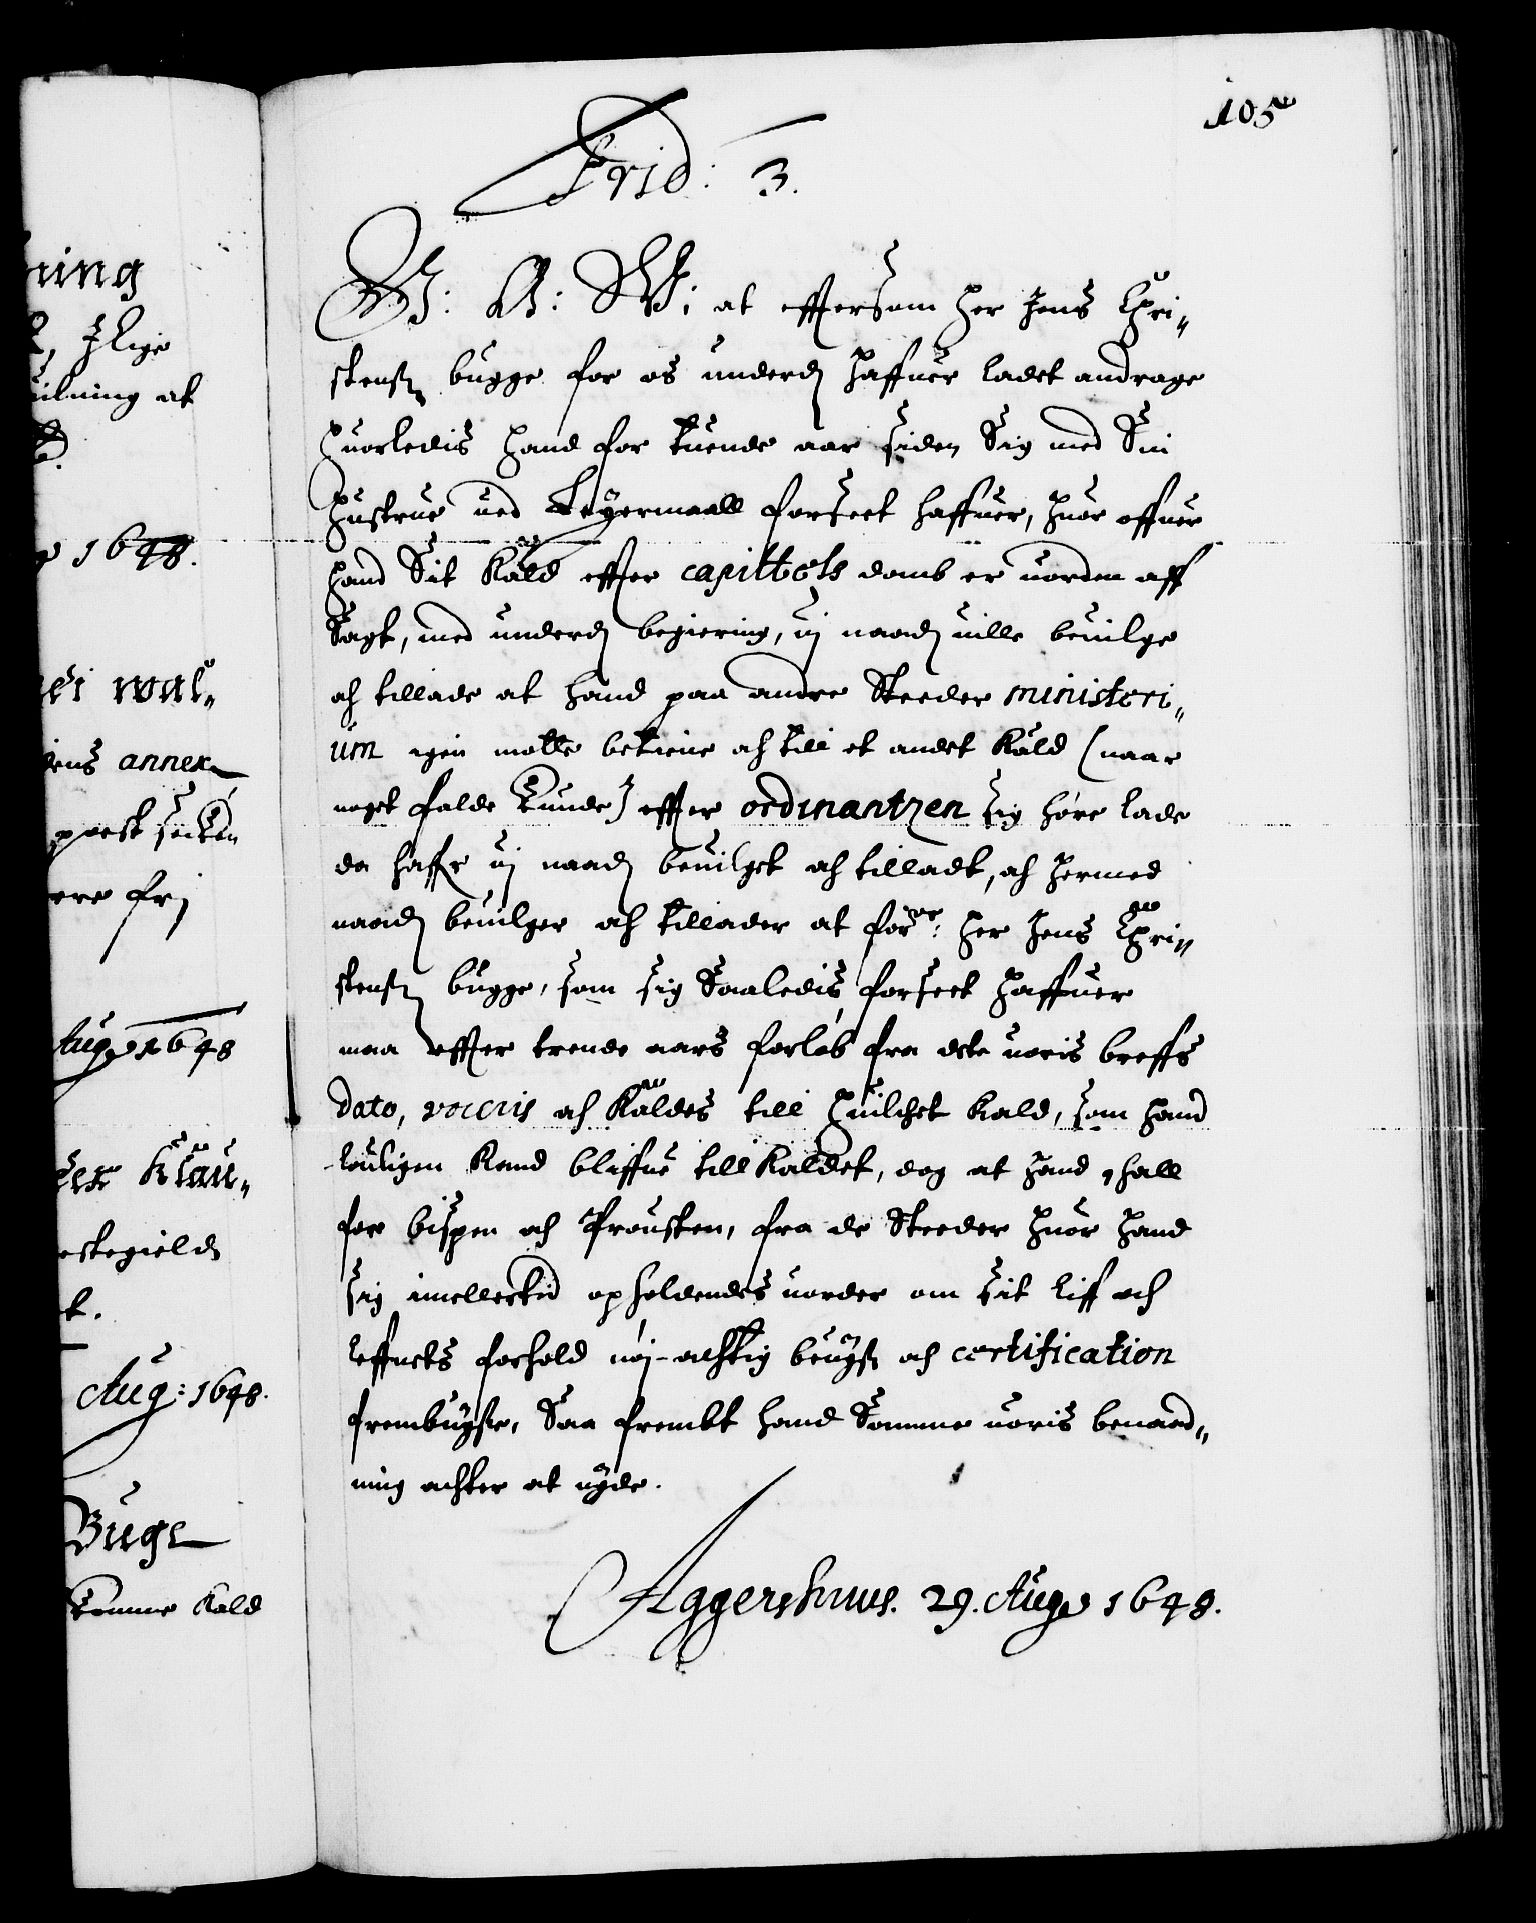 105
Frid: 3.
G: A: W: at effter som her Jens Chri„
stensß bugge for os underd haffuer ladet andrage
huorledis hand for tuende aar siden Sig med Sin
hustrue ued Leyermaall forseet haffuer, huor offuer
hand Sit Kald effter capittels domb er uorden aff
Sagt, med underd begiering, vi naad uille beuilge
och tillade at hand paa andre Steeder ministeri„
um igen motte betiene och till et andet Kald (naar
noget falde Kunde) effter ordinantzen sig høre lade
da haffr vi naad beuilget och tilladt, och hermed
naad beuilger och tillader at forne: her Jens Chri„
stensß bugge, som sig Saaledis forseet haffuer
maa effter trende aars forløb fra dete uoris breffs
dato, voceris och Kaldes till huilchet Kald, som hand
louligen Kand bliffue till Kaldet, dog at hand schall
for bispen och Prousten, fra de Steeder huor hand
sig imellertid opholdendes uorder om sit liff och
leffnets forhold nøj-achtig beuyß och certification
frembuyße, Saa frembt hand Samme uoris benaad„
ning achter at nyde.
Aggershuus. 29. Aug 1648.
ning
, Jlige
uilning at
1648.
annex
prest
ere frj
Aug 1648
estegield
t.
Aug: 1648.
Bugl
Komme Kald